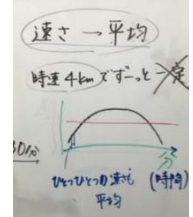 速さ → 平均
時速4kmでずーっと一定
30分
ひとつひとつの速さ
平均
(時間)